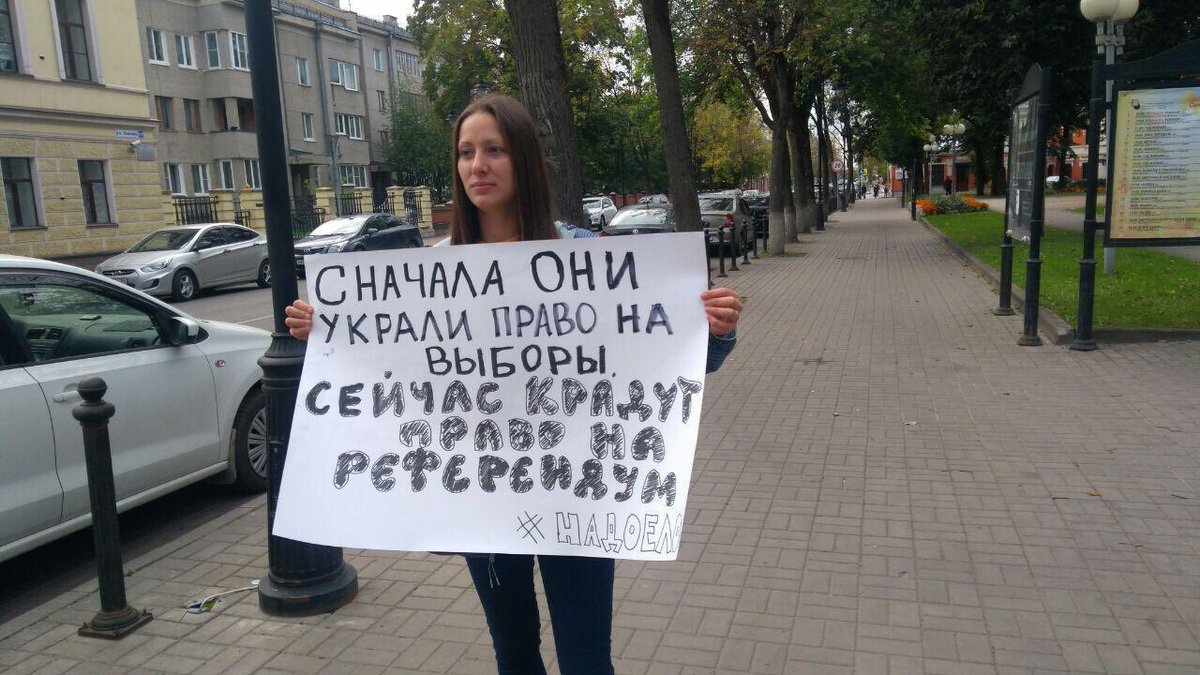 СНАЧАЛА ОНИ
УКРАЛИ ПРАВО НА
ВЫБОРЫ.
СЕЙЧАС КРАДУТ
ПРАВО НА
РЕФЕРЕНДУМ
#НАДОЕЛО